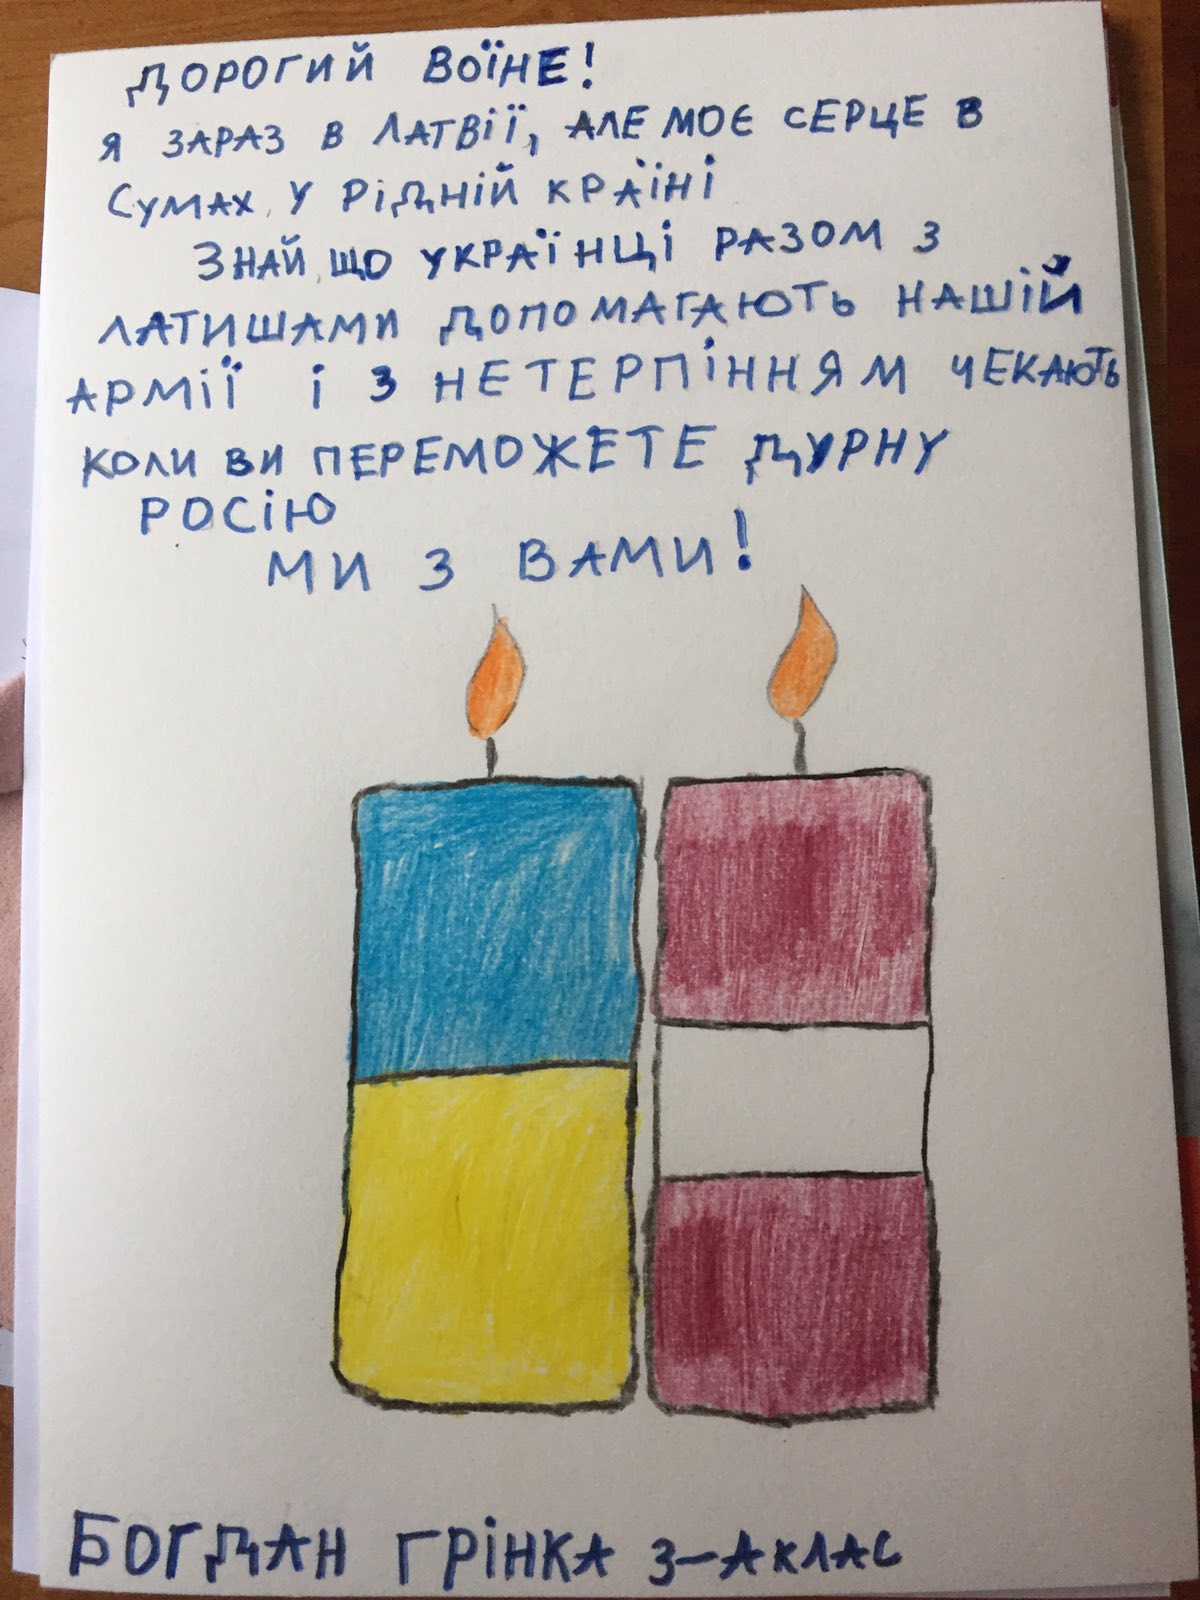 ДОРОГИЙ ВОЇНЕ!
Я ЗАРАЗ В ЛАТВІЇ, АЛЕ МОЄ СЕРЦЕ В
СУМАХ, У РІДНІЙ КРАЇНІ
ЗНАЙ, ЩО УКРАЇНЦІ РАЗОМ З
ЛАТИШАМИ ДОПОМАГАЮТЬ НАШІЙ
АРМІЇ І З НЕТЕРПІННЯМ ЧЕКАЮТЬ
КОЛИ ВИ ПЕРЕМОЖЕТЕ ДУРНУ
РОСІЮ
МИ З ВАМИ!
БОГДАН ГРІНКА 3-А КЛАС